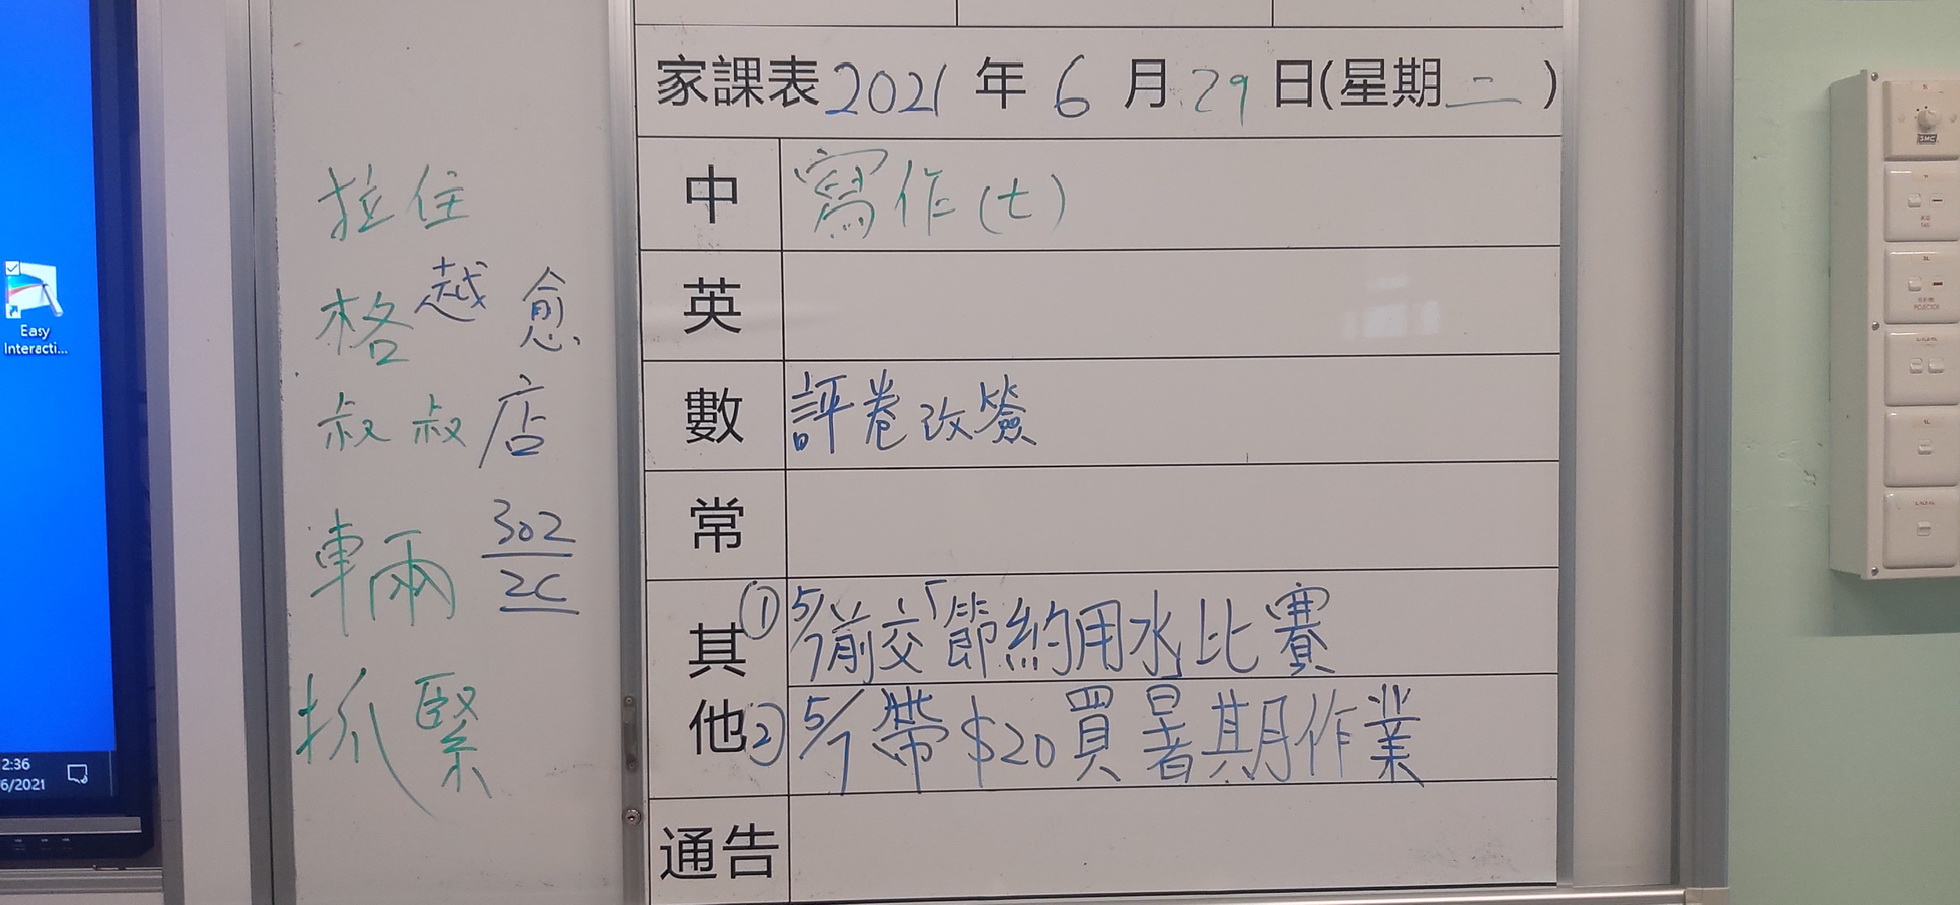 Easy
Interacti...
2:36
6/2021
拉住
格 越 愈
叔叔 店
車輛 302
2C
抓緊
家課表 2021 年 6 月 29 日(星期二)
中 寫作(七)
英
數 評卷改簽
常
其他
① 5/7前交「節約用水」比賽
② 5/7帶$20買暑期作業
通告